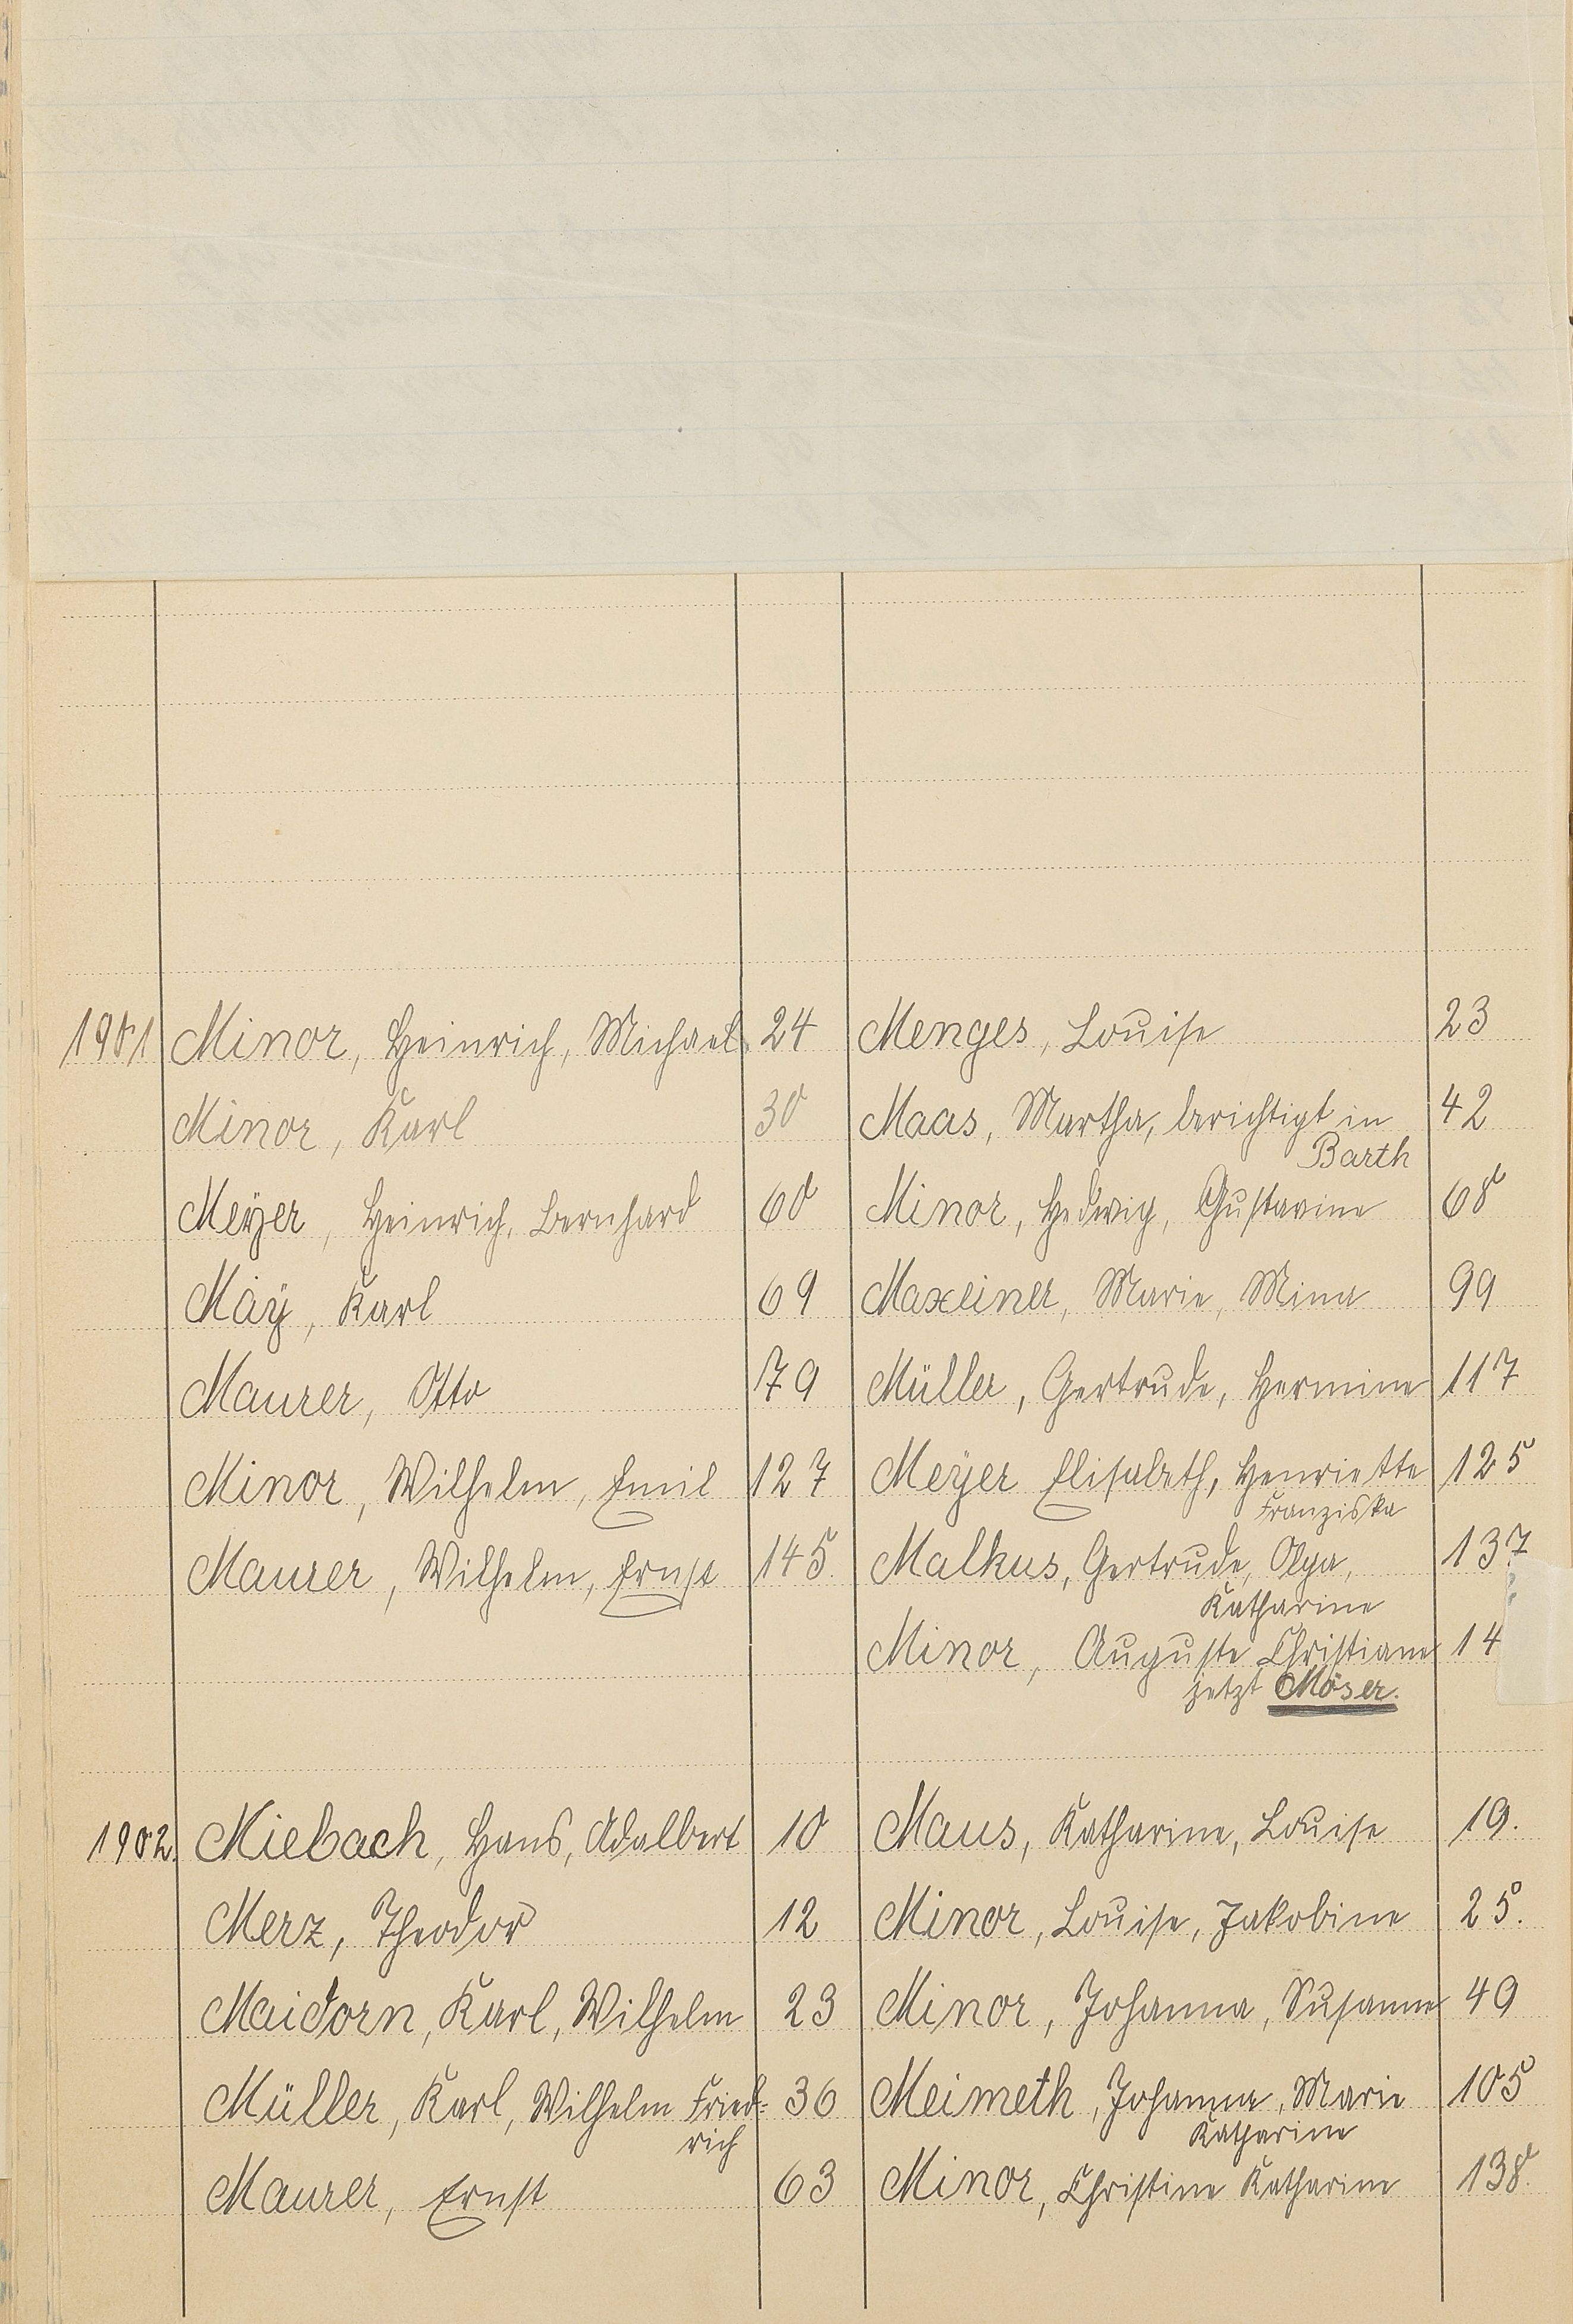 1901 Minor, Heinrich, Michael 24 Menges, Louise 23
Minor, Karl 30 Maas, Martha, berichtigt in 42
Barth
Meÿer, Heinrich, Bernhard 60 Minor, Hedwig, Gustavine 68
Maÿ, Karl 69 Maxeiner, Marie, Mina 99
Maurer, Otto 79 Müller, Gertrude, Hermine 117
Minor, Wilhelm, Emil 127 Meÿer Elisabeth, Henriette 125
Franziska
Maurer, Wilhelm, Ernst 145. Malkus, Gertrude, Olga, 137
Katharine
Minor, Auguste Christiane 14
jetzt Möser.
1902. Miebach, Hans, Adalbert 10 Maus, Katharine, Louise 19.
Merz, Theodor 12 Minor, Louise, Jakobine 25.
Maidorn, Karl, Wilhelm 23 Minor, Johanna, Susanne 49
Müller, Karl, Wilhelm Fried- 36 Meimeth, Johanna, Marie 105
rich Katharine
Maurer, Ernst 63 Minor, Christine Katharine 138.